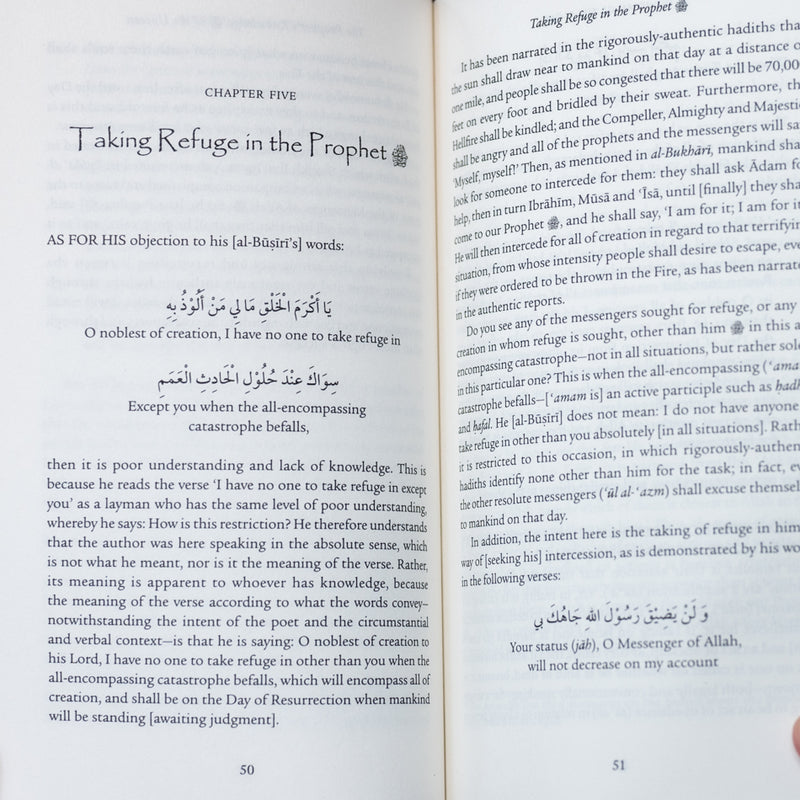 CHAPTER FIVE
Taking Refuge in the Prophet ﷺ
AS FOR HIS objection to his [al-Būṣīrī's] words:
يَا أَكْرَمَ الْخَلْقِ مَا لِي مَنْ أَلُوْذُ بِهِ
O noblest of creation, I have no one to take refuge in
سِوَاكَ عِنْدَ حُلُوْلِ الْحَادِثِ الْعَمَمِ
Except you when the all-encompassing
catastrophe befalls,
then it is poor understanding and lack of knowledge. This is
because he reads the verse ‘I have no one to take refuge in except
you’ as a layman who has the same level of poor understanding,
whereby he says: How is this restriction? He therefore understands
that the author was here speaking in the absolute sense, which
is not what he meant, nor is it the meaning of the verse. Rather,
its meaning is apparent to whoever has knowledge, because
the meaning of the verse according to what the words convey—
notwithstanding the intent of the poet and the circumstantial
and verbal context—is that he is saying: O noblest of creation to
his Lord, I have no one to take refuge in other than you when the
all-encompassing catastrophe befalls, which will encompass all of
creation, and shall be on the Day of Resurrection when mankind
will be standing [awaiting judgment].
50
Taking Refuge in the Prophet ﷺ
It has been narrated in the rigorously-authentic hadiths
the sun shall draw near to mankind on that day at a distance
one mile, and people shall be so congested that there will be 70,000
feet on every foot and bridled by their sweat. Furthermore,
Hellfire shall be kindled; and the Compeller, Almighty and
shall be angry and all of the prophets and the messengers will
‘Myself, myself!’ Then, as mentioned in al-Bukhārī, mankind
look for someone to intercede for them: they shall ask Ādam
help, then in turn Ibrāhīm, Mūsā and ʿĪsā, until [finally] they
come to our Prophet ﷺ, and he shall say, ‘I am for it; I am for
He will then intercede for all of creation in regard to that
situation, from whose intensity people shall desire to escape,
if they were ordered to be thrown in the Fire, as has been
in the authentic reports.
Do you see any of the messengers sought for refuge, or any
creation in whom refuge is sought, other than him ﷺ in this
encompassing catastrophe—not in all situations, but rather
in this particular one? This is when the all-encompassing
catastrophe befalls—[ʿamam is] an active participle such as
and ḥafal. He [al-Būṣīrī] does not mean: I do not have anyone
take refuge in other than you absolutely [in all situations].
it is restricted to this occasion, in which
hadiths identify none other than him for the task; in fact,
the other resolute messengers (ʾūl al-ʿazm) shall excuse
to mankind on that day.
In addition, the intent here is the taking of refuge in him
way of [seeking his] intercession, as is demonstrated by his
in the following verses:
وَ لَنْ يَضِيْقَ رَسُوْلَ اللهِ جَاهُكَ بِي
Your status (jāh), O Messenger of Allah,
will not decrease on my account
51